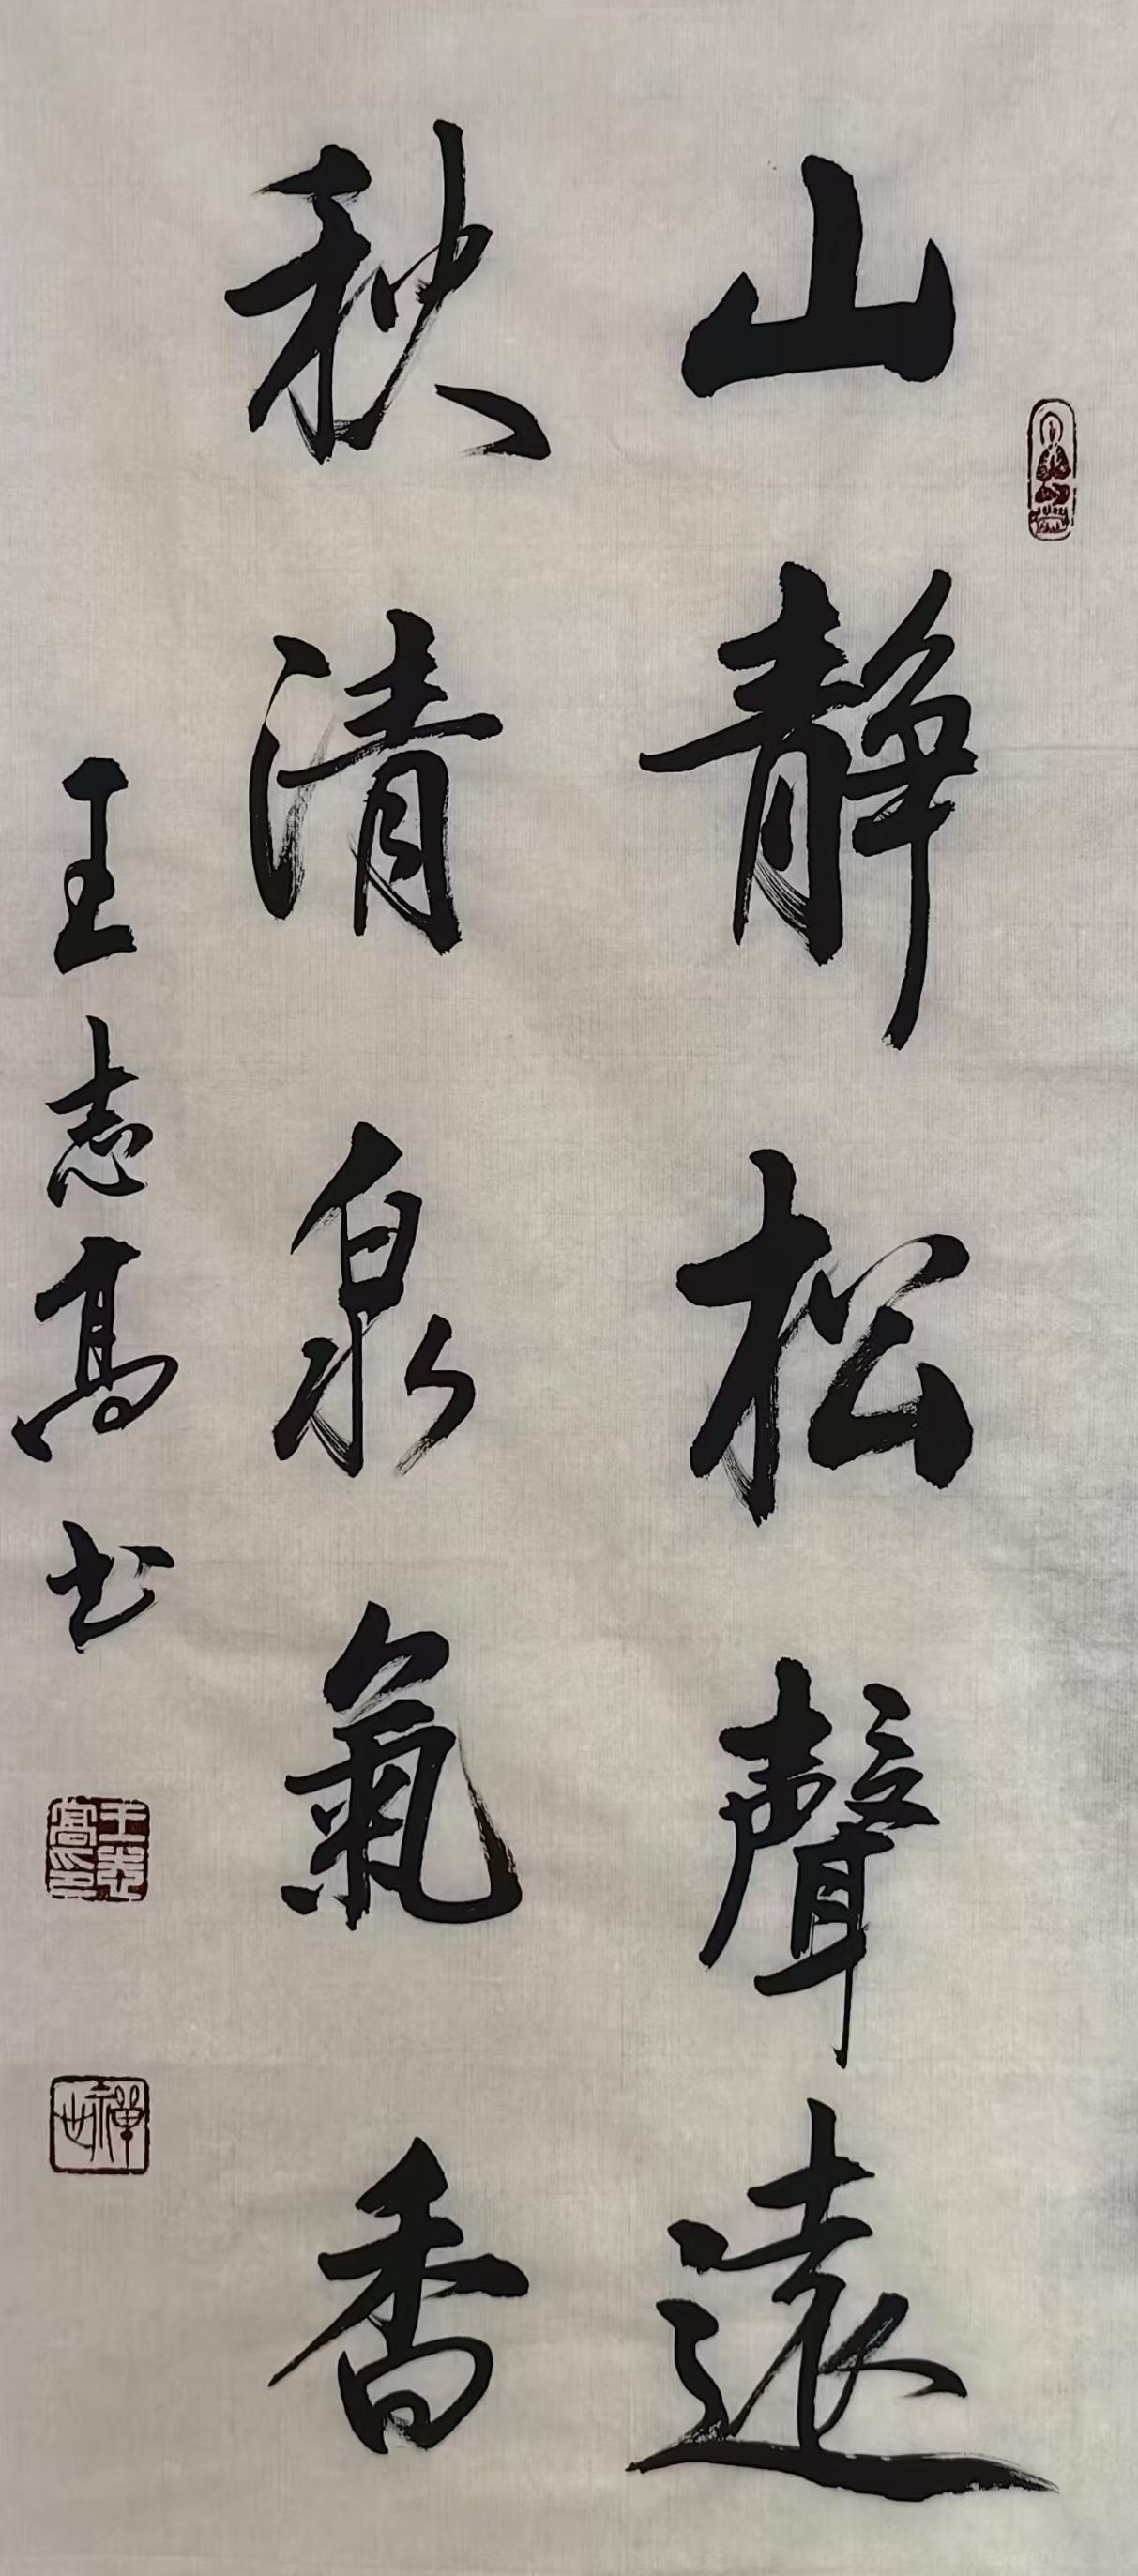 山靜松聲遠
秋清泉氣香
王志高书
王志高印
禪世